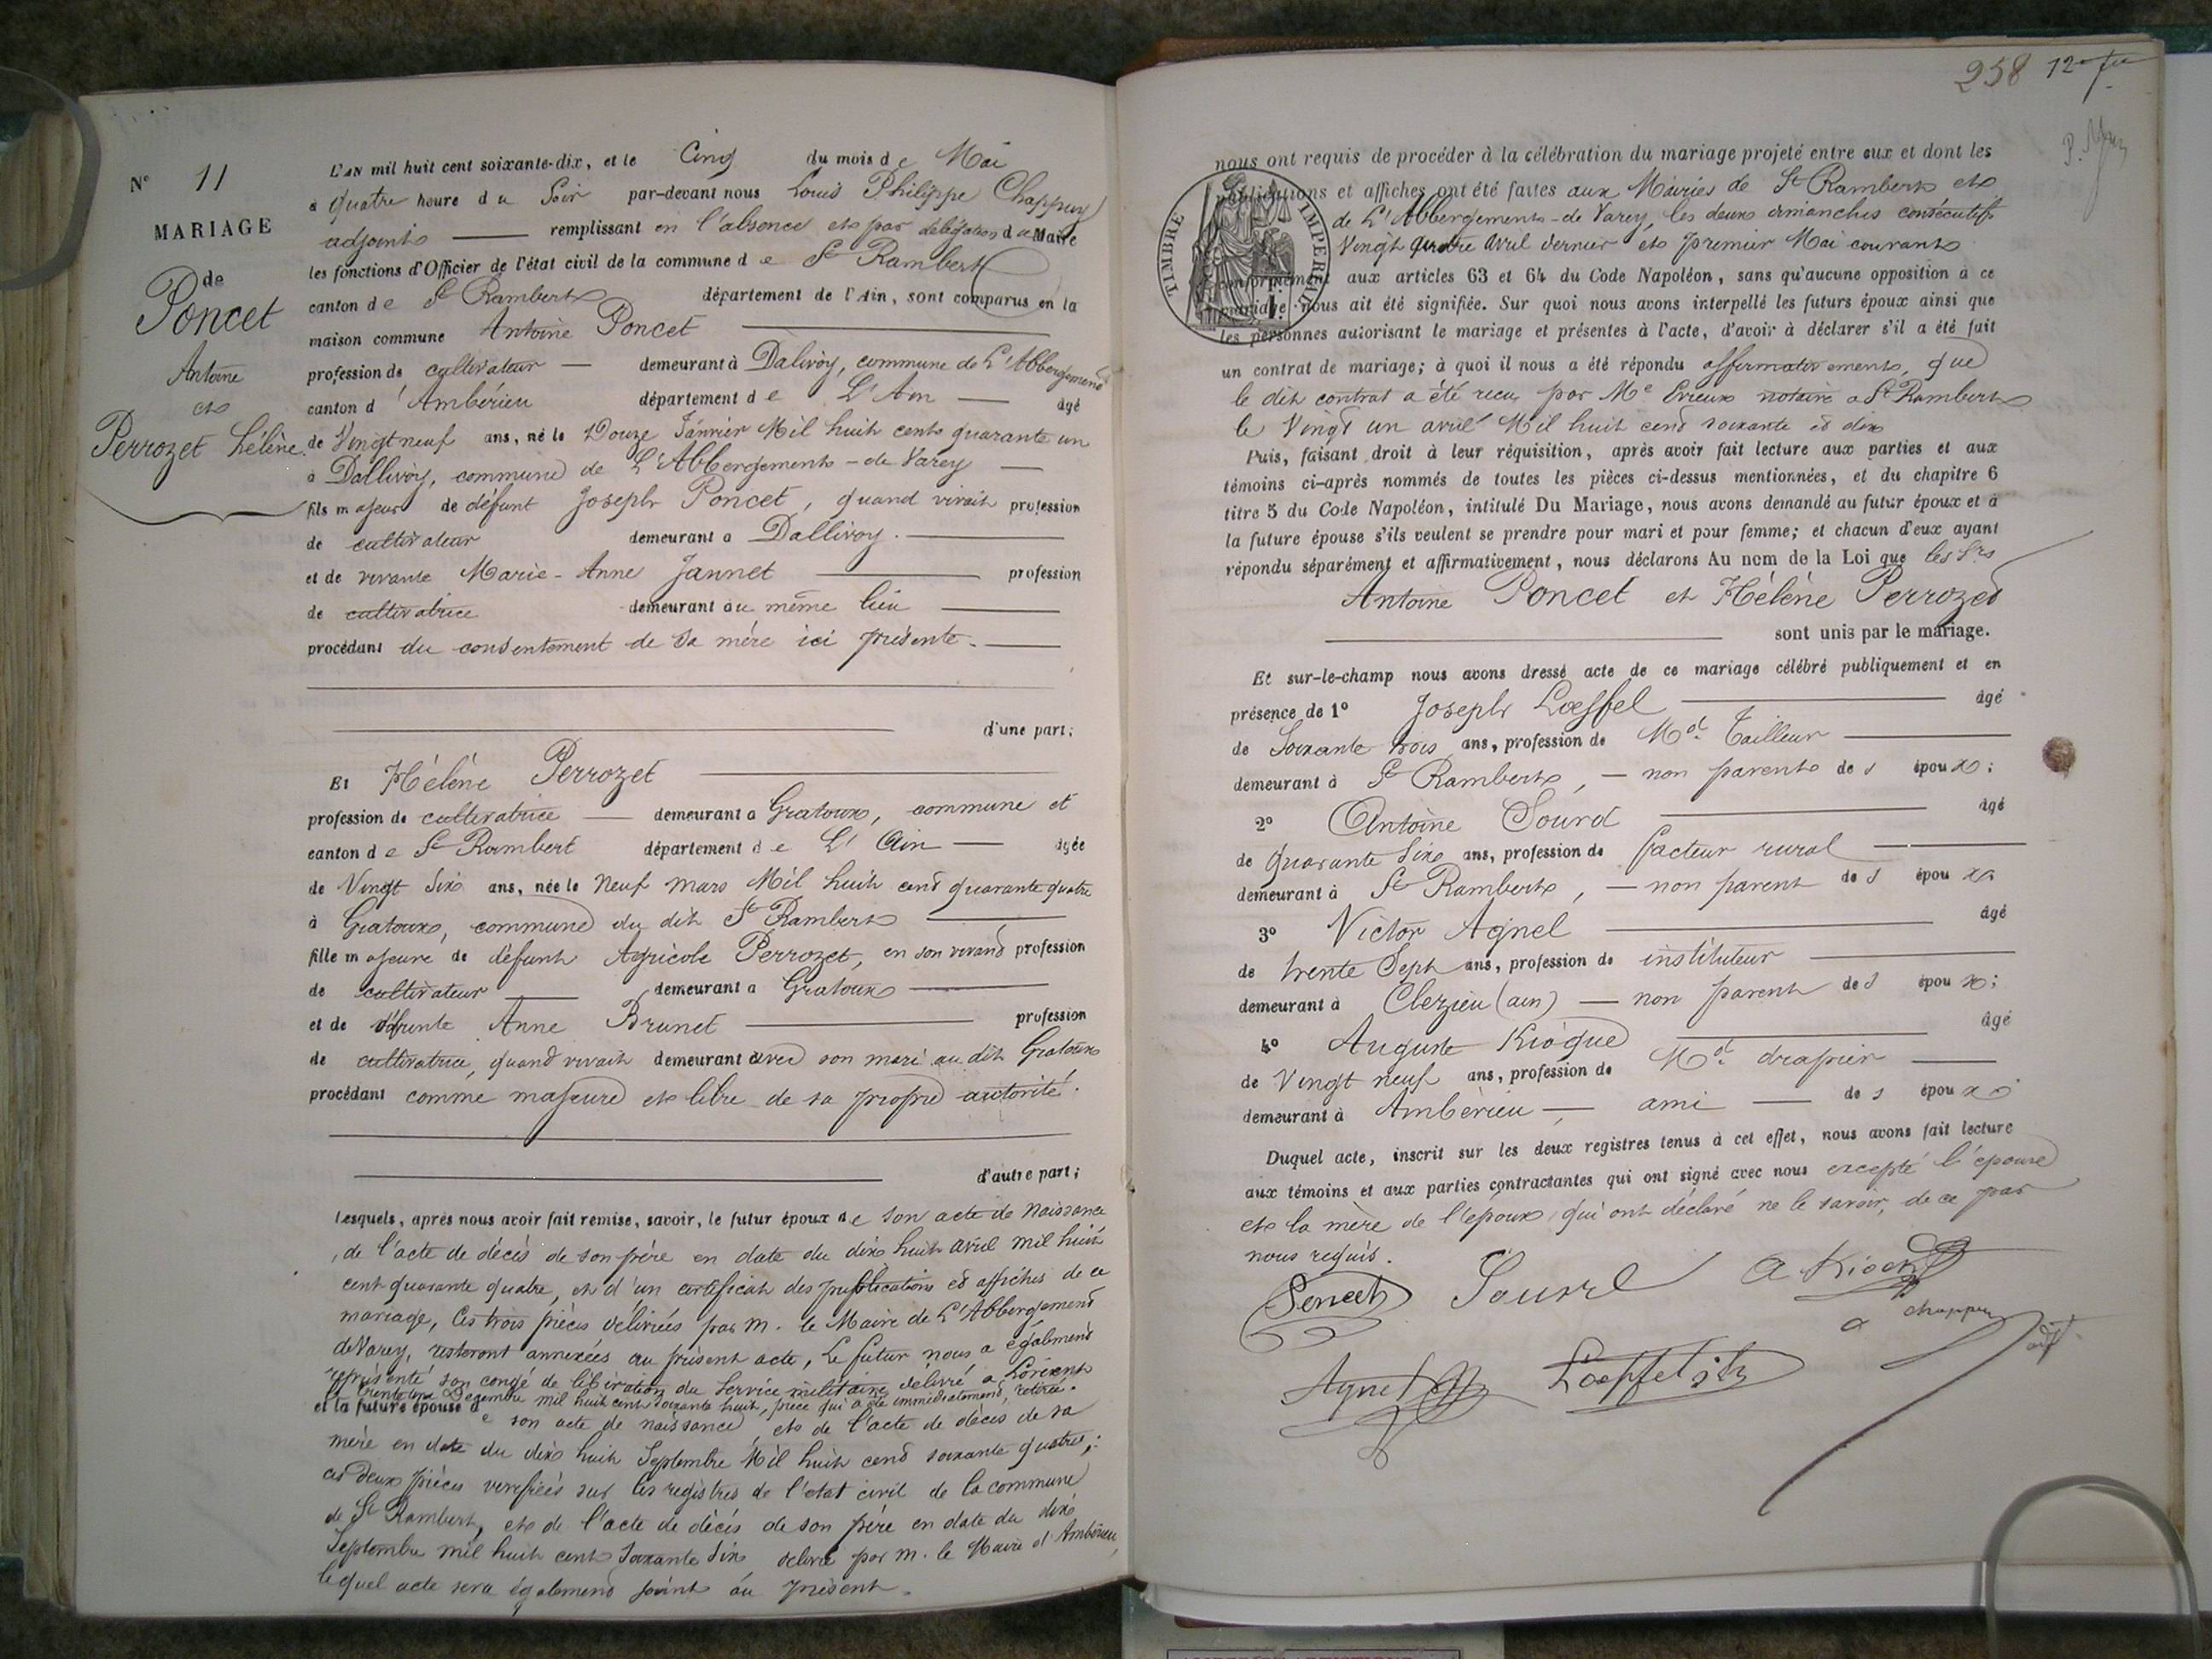 N° 11
MARIAGE
de
Poncet
Antoine
et
Perrozet Hélène
L'AN mil huit cent soixante-dix, et le Cinq du mois de Mai
à quatre heure du Soir par-devant nous Louis Philippe Chappuy
adjoint remplissant en l'absence et par délégation du Maire
les fonctions d'Officier de l'état civil de la commune de St Rambert
canton de St Rambert département de l'Ain, sont comparus en la
maison commune Antoine Poncet
profession de cultivateur demeurant à Dalivoy, commune de L'Abbergement
canton d'Ambérieu département de L'Ain âgé
de Vingt neuf ans, né le Douze Janvier Mil huit cent quarante un
à Dallivoy, commune de L'Abbergement-de Varey
fils majeur de défunt Joseph Poncet, quand vivait profession
de cultivateur demeurant à Dallivoy.
et de vivante Marie-Anne Jannet profession
de cultivatrice demeurant au même lieu
procédant du consentement de sa mère ici présente.
d'une part;
Et Hélène Perrozet
profession de cultivatrice demeurant à Gratoux, commune et
canton de St Rambert département de L'Ain âgée
de Vingt Six ans, née le Neuf mars Mil huit cent quarante quatre
à Gratoux, commune du dit St Rambert
fille majeure de défunt Agricole Perrozet, en son vivant profession
de cultivateur demeurant à Gratoux
et de défunte Anne Brunet profession
de cultivatrice, quand vivait demeurant avec son mari au dit Gratoux
procédant comme majeure et libre de sa propre autorité.
d'autre part;
Lesquels, après nous avoir fait remise, savoir, le futur époux de son acte de Naissance
, de l'acte de décès de son père en date du dix huit avril mil huit
cent quarante quatre, et d'un certificat des publications et affiches de ce
mariage, ces trois pièces délivrées par M. le Maire de L'Abbergement
de Varey, resteront annexées au présent acte, Le futur nous a également
représenté son congé de libération du Service militaire délivré a Lorient
le trente un Décembre mil huit cent soixante huit, pièce qui a été immédiatement retirée.
et la future épouse de son acte de naissance, et de l'acte de décès de sa
mère en date du dix huit Septembre Mil huit cent soixante quatre;
ces deux pièces vérifiées sur les registres de l'état civil de la commune
de St Rambert, et de l'acte de décès de son père en date du dix
Septembre mil huit cent soixante Six délivré par M. le Maire d'Ambérieu,
lequel acte sera également joint au présent.
258 12e
nous ont requis de procéder à la célébration du mariage projeté entre eux et dont les
publications et affiches ont été faites aux Mairies de St Rambert et
de L'Abbergement-de Varey, les deux dimanches consécutifs
Vingt quatre avril dernier et premier Mai courant
conformément aux articles 63 et 64 du Code Napoléon, sans qu'aucune opposition à ce
mariage nous ait été signifiée. Sur quoi nous avons interpellé les futurs époux ainsi que
les personnes autorisant le mariage et présentes à l'acte, d'avoir à déclarer s'il a été fait
un contrat de mariage; à quoi il nous a été répondu affirmativement, que
le dit contrat a été reçu par Me notaire a St Rambert
le Vingt un avril Mil huit cent soixante et dix
Puis, faisant droit à leur réquisition, après avoir fait lecture aux parties et aux
témoins ci-après nommés de toutes les pièces ci-dessus mentionnées, et du chapitre 6
titre 5 du Code Napoléon, intitulé Du Mariage, nous avons demandé au futur époux et à
la future épouse s'ils veulent se prendre pour mari et pour femme; et chacun d'eux ayant
répondu séparément et affirmativement, nous déclarons Au nom de la Loi que les Srs
Antoine Poncet et Hélène Perrozet
sont unis par le mariage.
Et sur-le-champ nous avons dressé acte de ce mariage célébré publiquement et en
présence de 1° Joseph Lœffel âgé
de Soixante trois ans, profession de Md. Tailleur
demeurant à St Rambert, non parent des époux;
2° Antoine Sourd âgé
de quarante Six ans, profession de facteur rural
demeurant à St Rambert, non parent des époux
3° Victor Agnel âgé
de trente Sept ans, profession de instituteur
demeurant à Clezieu (ain) non parent des époux;
4° Auguste Kiogue âgé
de Vingt neuf ans, profession de Md. drapier
demeurant à Ambérieu, ami des époux
Duquel acte, inscrit sur les deux registres tenus à cet effet, nous avons fait lecture
aux témoins et aux parties contractantes qui ont signé avec nous excepté l'épouse
et la mère de l'époux, qui ont déclaré ne le savoir, de ce par
nous requis.
TIMBRE IMPERIAL
Sourd
chappuy
adjt
Agnel Loeffel